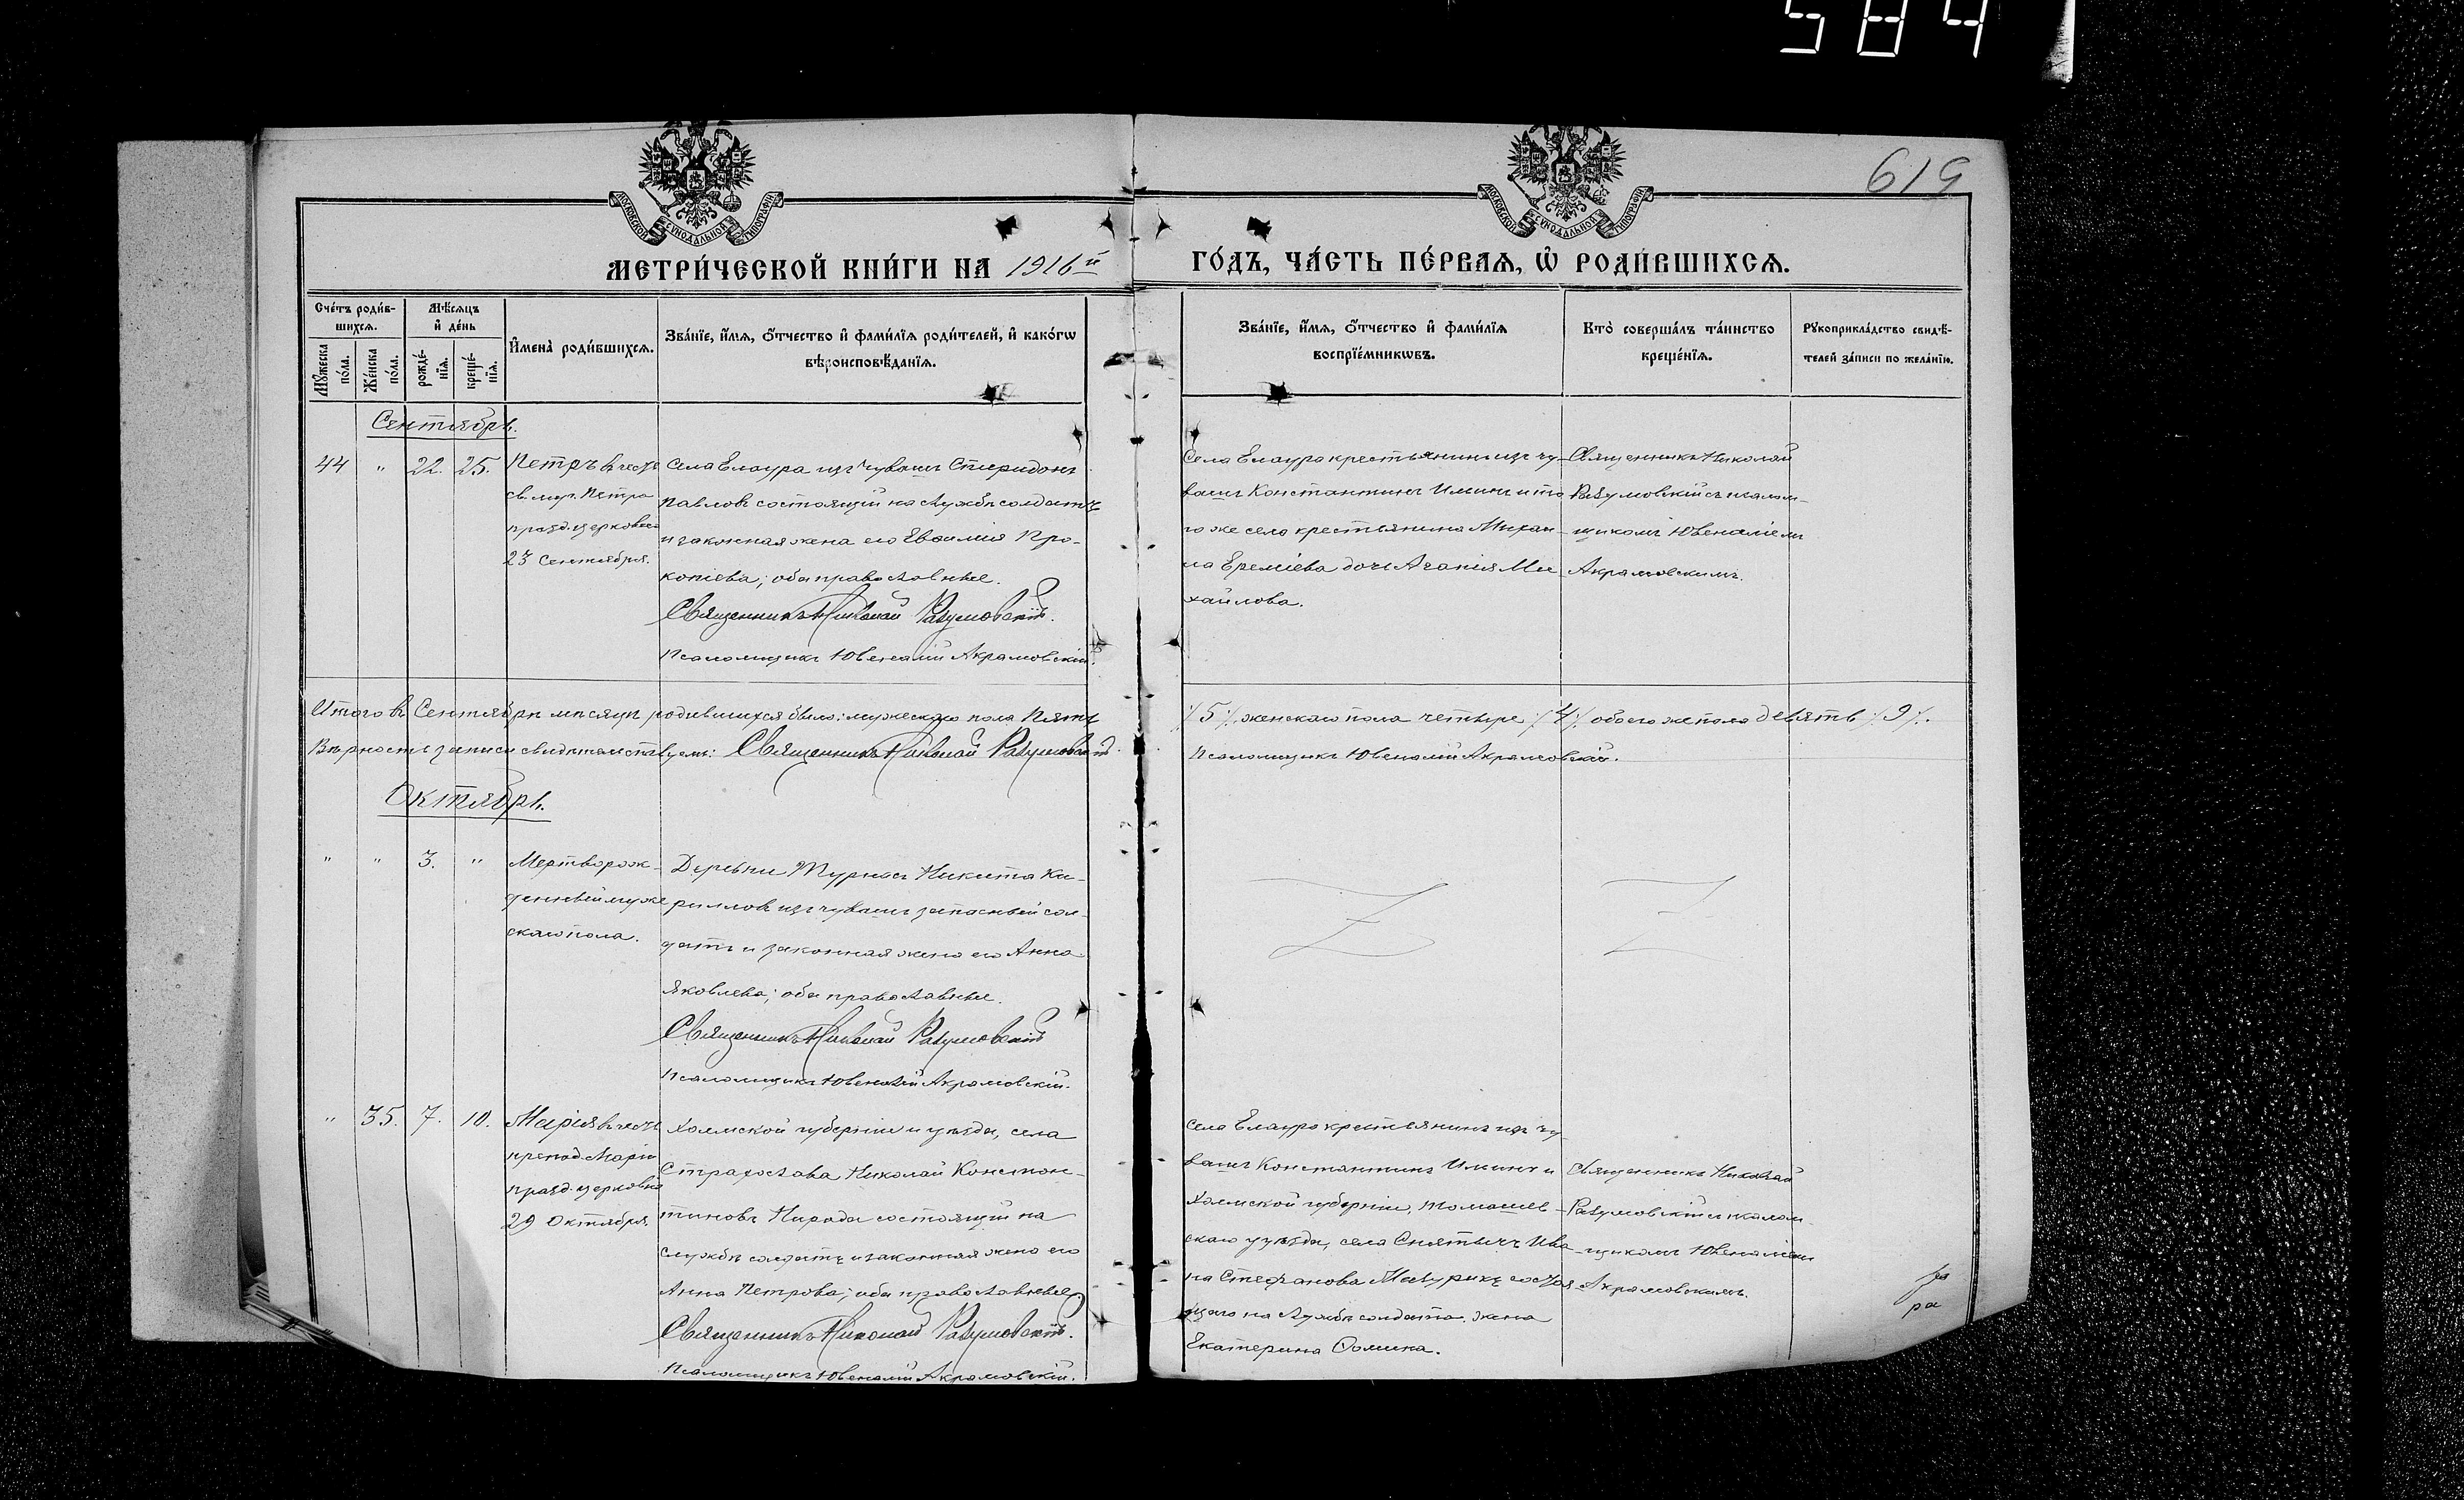 584
619
МОСКОВСКОЙ СУНОДАЛЬНОЙ ТИПОГРАФІИ
МОСКОВСКОЙ СУНОДАЛЬНОЙ ТИПОГРАФІИ
МЕТРИ́ЧЕСКОЙ КНИ́ГИ НА 1916й ГО́ДЪ, ЧА́СТЬ ПЕ́РВАЯ, Ѡ҆ РОДИ́ВШИХСЯ.
Сче́тъ роди́в-
шихся.
Му́жеска по́ла.
Же́нска по́ла.
Мѣ́сяцъ
и҆ де́нь
рожде́-
нїя.
креще́-
нїя.
И҆мена̀ роди́вшихся.
Зва́нїе, и҆́мя, ѻ҆́тчество и҆ фами́лїя роди́телей, и҆ како́гѡ
вѣроисповѣ́данїя.
Зва́нїе, и҆́мя, ѻ҆́тчество и҆ фами́лїя
воспрїе́мникѡвъ.
Кто̀ соверша́лъ та́инство
креще́нїя.
Рꙋкоприкла́дство свидѣ́-
телей за́писи по жела́нїю.
Сентябрь.
44 " 22. 25.
Петръ въ честь
св. муч. Петра
празд. церковью
23 Сентября.
Села Елаура изъ чувашъ Спиридонъ
Павловъ состоящій на службѣ солдатъ
и законная жена его Евѳимія Про-
копіева; оба православные.
Священникъ Николай Разумовскій.
Псаломщикъ Ювеналій Акрамовскій.
Села Елаура крестьянинъ изъ чу-
вашъ Константинъ Иминъ и то
го же села крестьянина Михаи-
ла Еремѣева дочь Агапія Ми-
хайлова.
Священникъ Николай
Разумовскій съ псалом-
щикомъ Ювеналіемъ
Акрамовскимъ.
Итого въ Сентябрѣ мѣсяцѣ родившихся было: мужескаго пола Пять /5/ женскаго пола четыре /4/ обоего же пола девять /9/.
Вѣрность записи свидѣтельствуемъ: Священникъ Николай Разумовскій
Псаломщикъ Ювеналій Акрамовскій.
Октябрь.
" " 3. "
Мертворож-
денный муже
скаго пола.
Деревни Турнасъ Никита Ки-
рилловъ изъ чувашъ запасный сол-
датъ и законная жена его Анна
Яковлева; оба православные.
Священникъ Николай Разумовскій
Псаломщикъ Ювеналій Акрамовскій.
" 35. 7. 10.
Марія въ честь
препод. Маріи
празд. церковью
29 Октября.
Холмской губерніи и уѣзда, села
Страхослава Николай Констан-
тиновъ состоящій на
службѣ солдатъ и законная жена его
Анна Петрова; оба православные.
Священникъ Николай Разумовскій.
Псаломщикъ Ювеналій Акрамовскій.
Села Елаура крестьянинъ изъ чу-
вашъ Константинъ Иминъ и
Холмской губерніи, Томашев-
скаго уѣзда, села Снятычъ Ива-
на Стефанова Мазурикъ состоя-
щаго на службѣ солдата жена
Екатерина Ѳомина.
Священникъ Николай
Разумовскій съ псалом-
щикомъ Ювеналіемъ
Акрамовскимъ.
ра